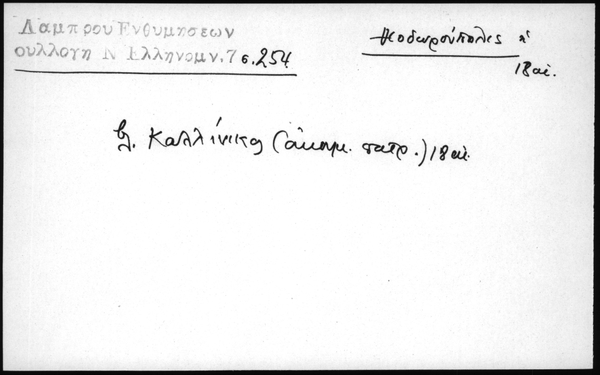 Λαμπρου Ενθυμησεων
συλλογη Ν Ελληνομν. 7 σ. 254
Θεοδωρούπολις ἡ
18 αἰ.
βλ. Καλλίνικος (ἀκαρν. πατρ.) 18 αἰ.